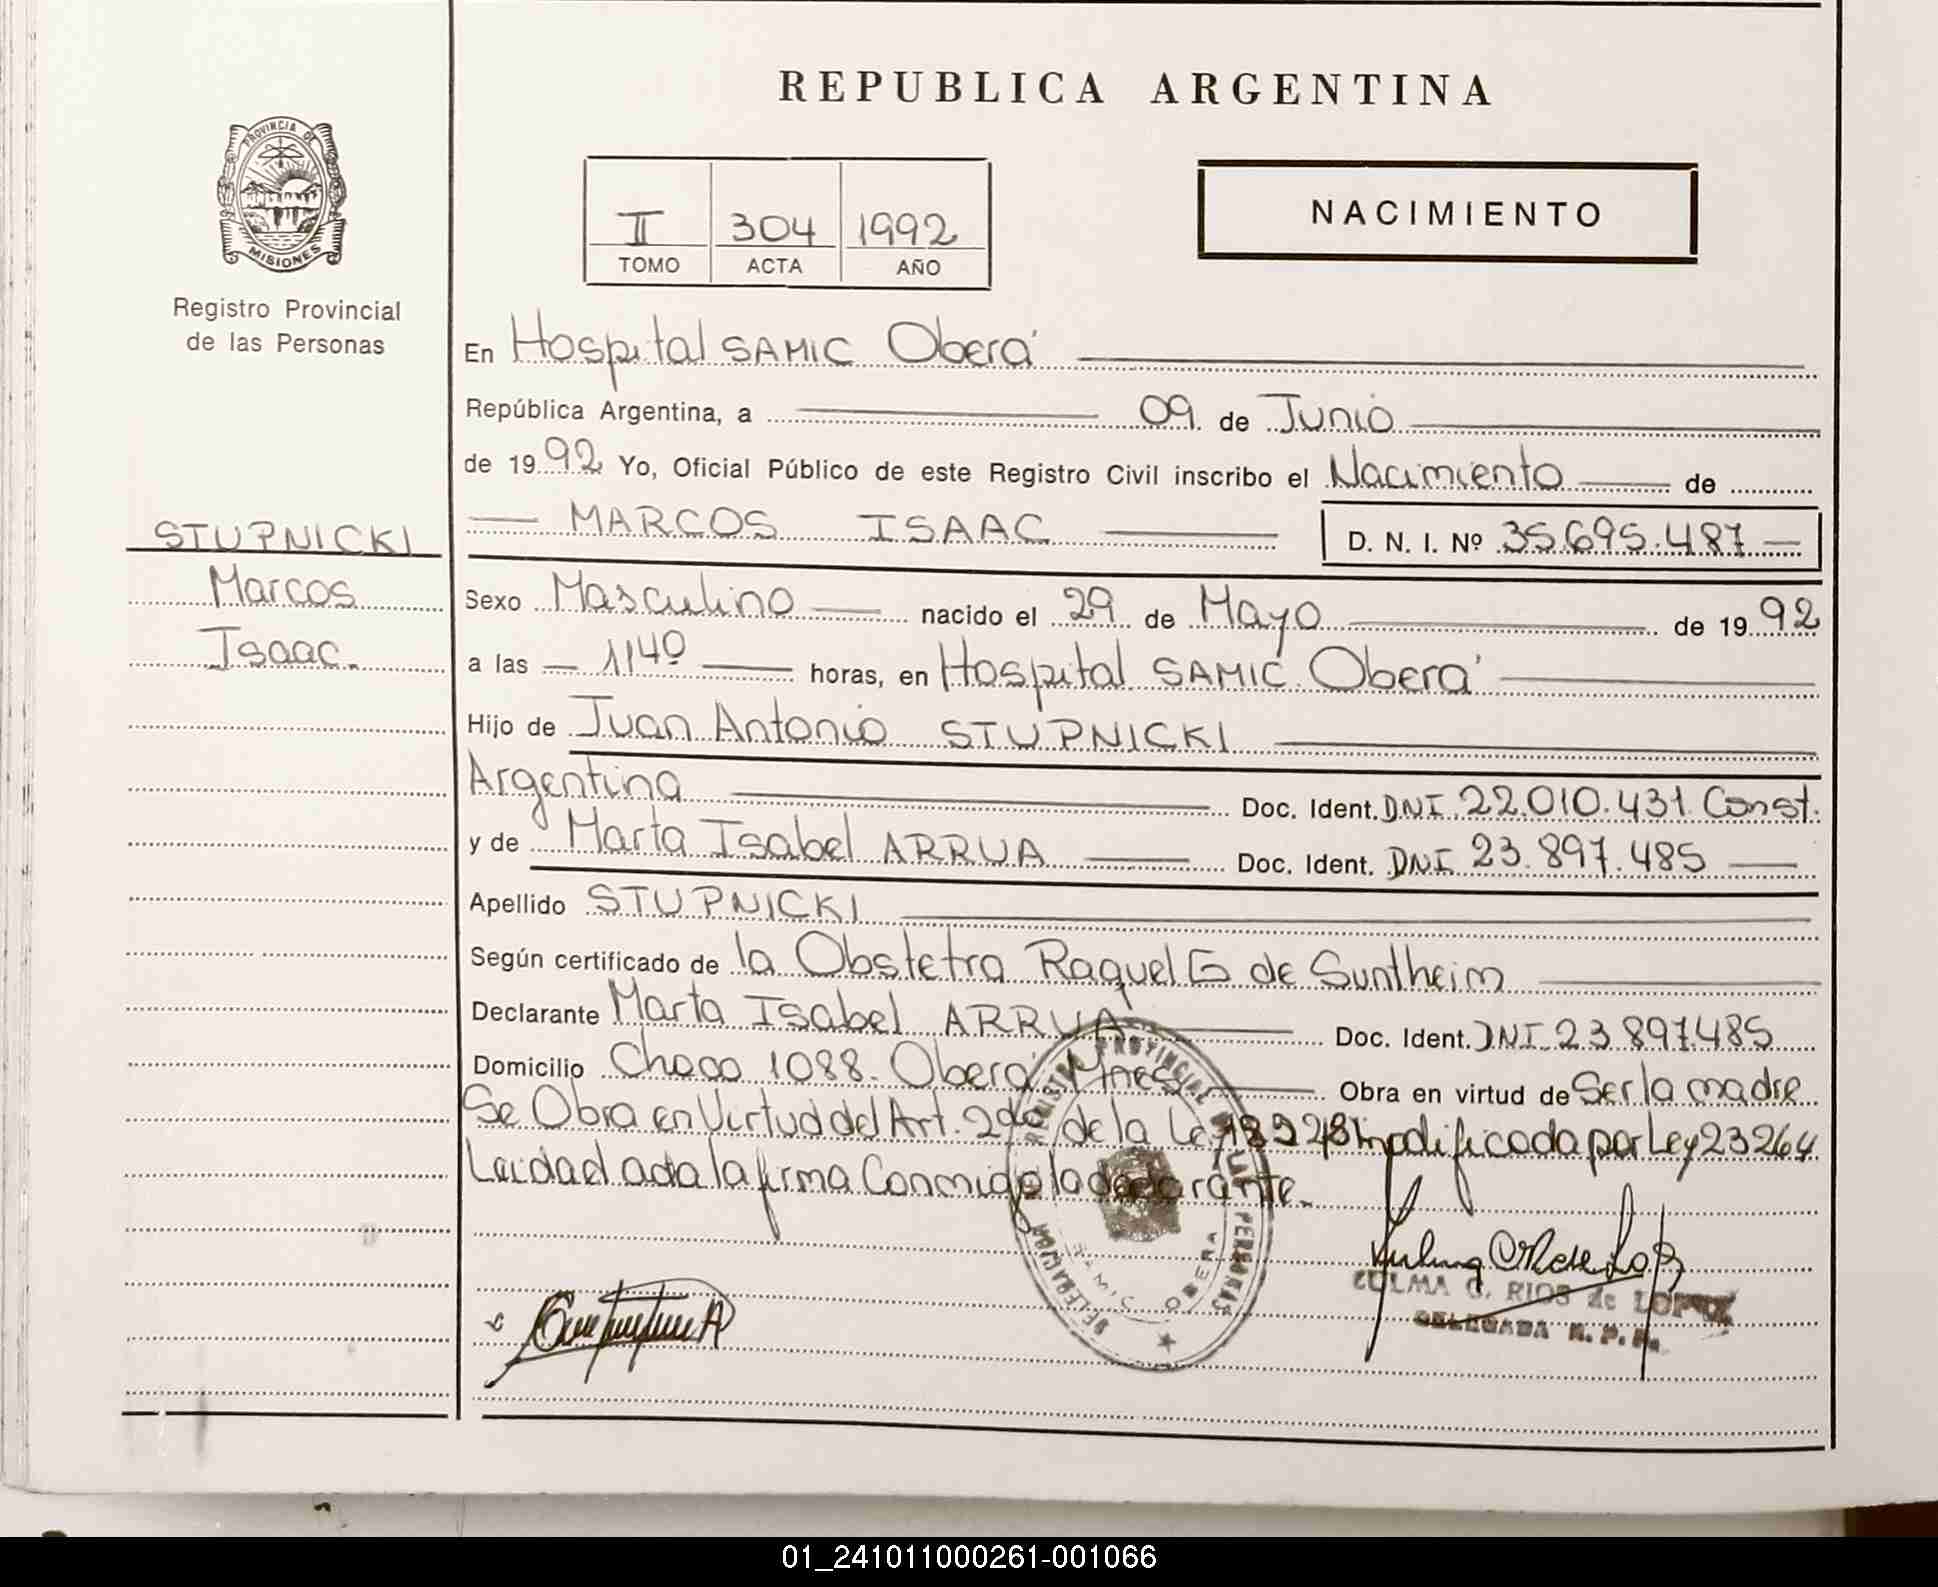 REPUBLICA ARGENTINA
PROVINCIA DE
MISIONES
Registro Provincial
de las Personas
II 304 1992
TOMO ACTA AÑO
NACIMIENTO
En Hospital SAMIC Oberá
República Argentina, a 09 de Junio
de 1992 Yo, Oficial Público de este Registro Civil inscribo el Nacimiento de
MARCOS ISAAC D. N. I. Nº 35.695.487
STUPNICKI
Marcos
Isaac.
Sexo Masculino nacido el 29 de Mayo de 1992
a las 1140 horas, en Hospital SAMIC Oberá
Hijo de Juan Antonio STUPNICKI
Argentina Doc. Ident. DNI 22.010.431 Const.
y de Marta Isabel ARRUA Doc. Ident. DNI 23.897.485
Apellido STUPNICKI
Según certificado de la Obstetra Raquel G de Suntheim
Declarante Marta Isabel ARRUA Doc. Ident. DNI 23 897.485
Domicilio Chaco 1088. Oberá Mnes Obra en virtud de Ser la madre
Se Obra en Virtud del Art. 2do de la Ley 18248 modificada por Ley 23264
Leida el acta la firma Conmigo la declarante.
REGISTRO PROVINCIAL DE LAS PERSONAS
SAMIC OBERA
ZULMA C. RIOS de LOPEZ
DELEGADA R. P. P.
01_241011000261-001066